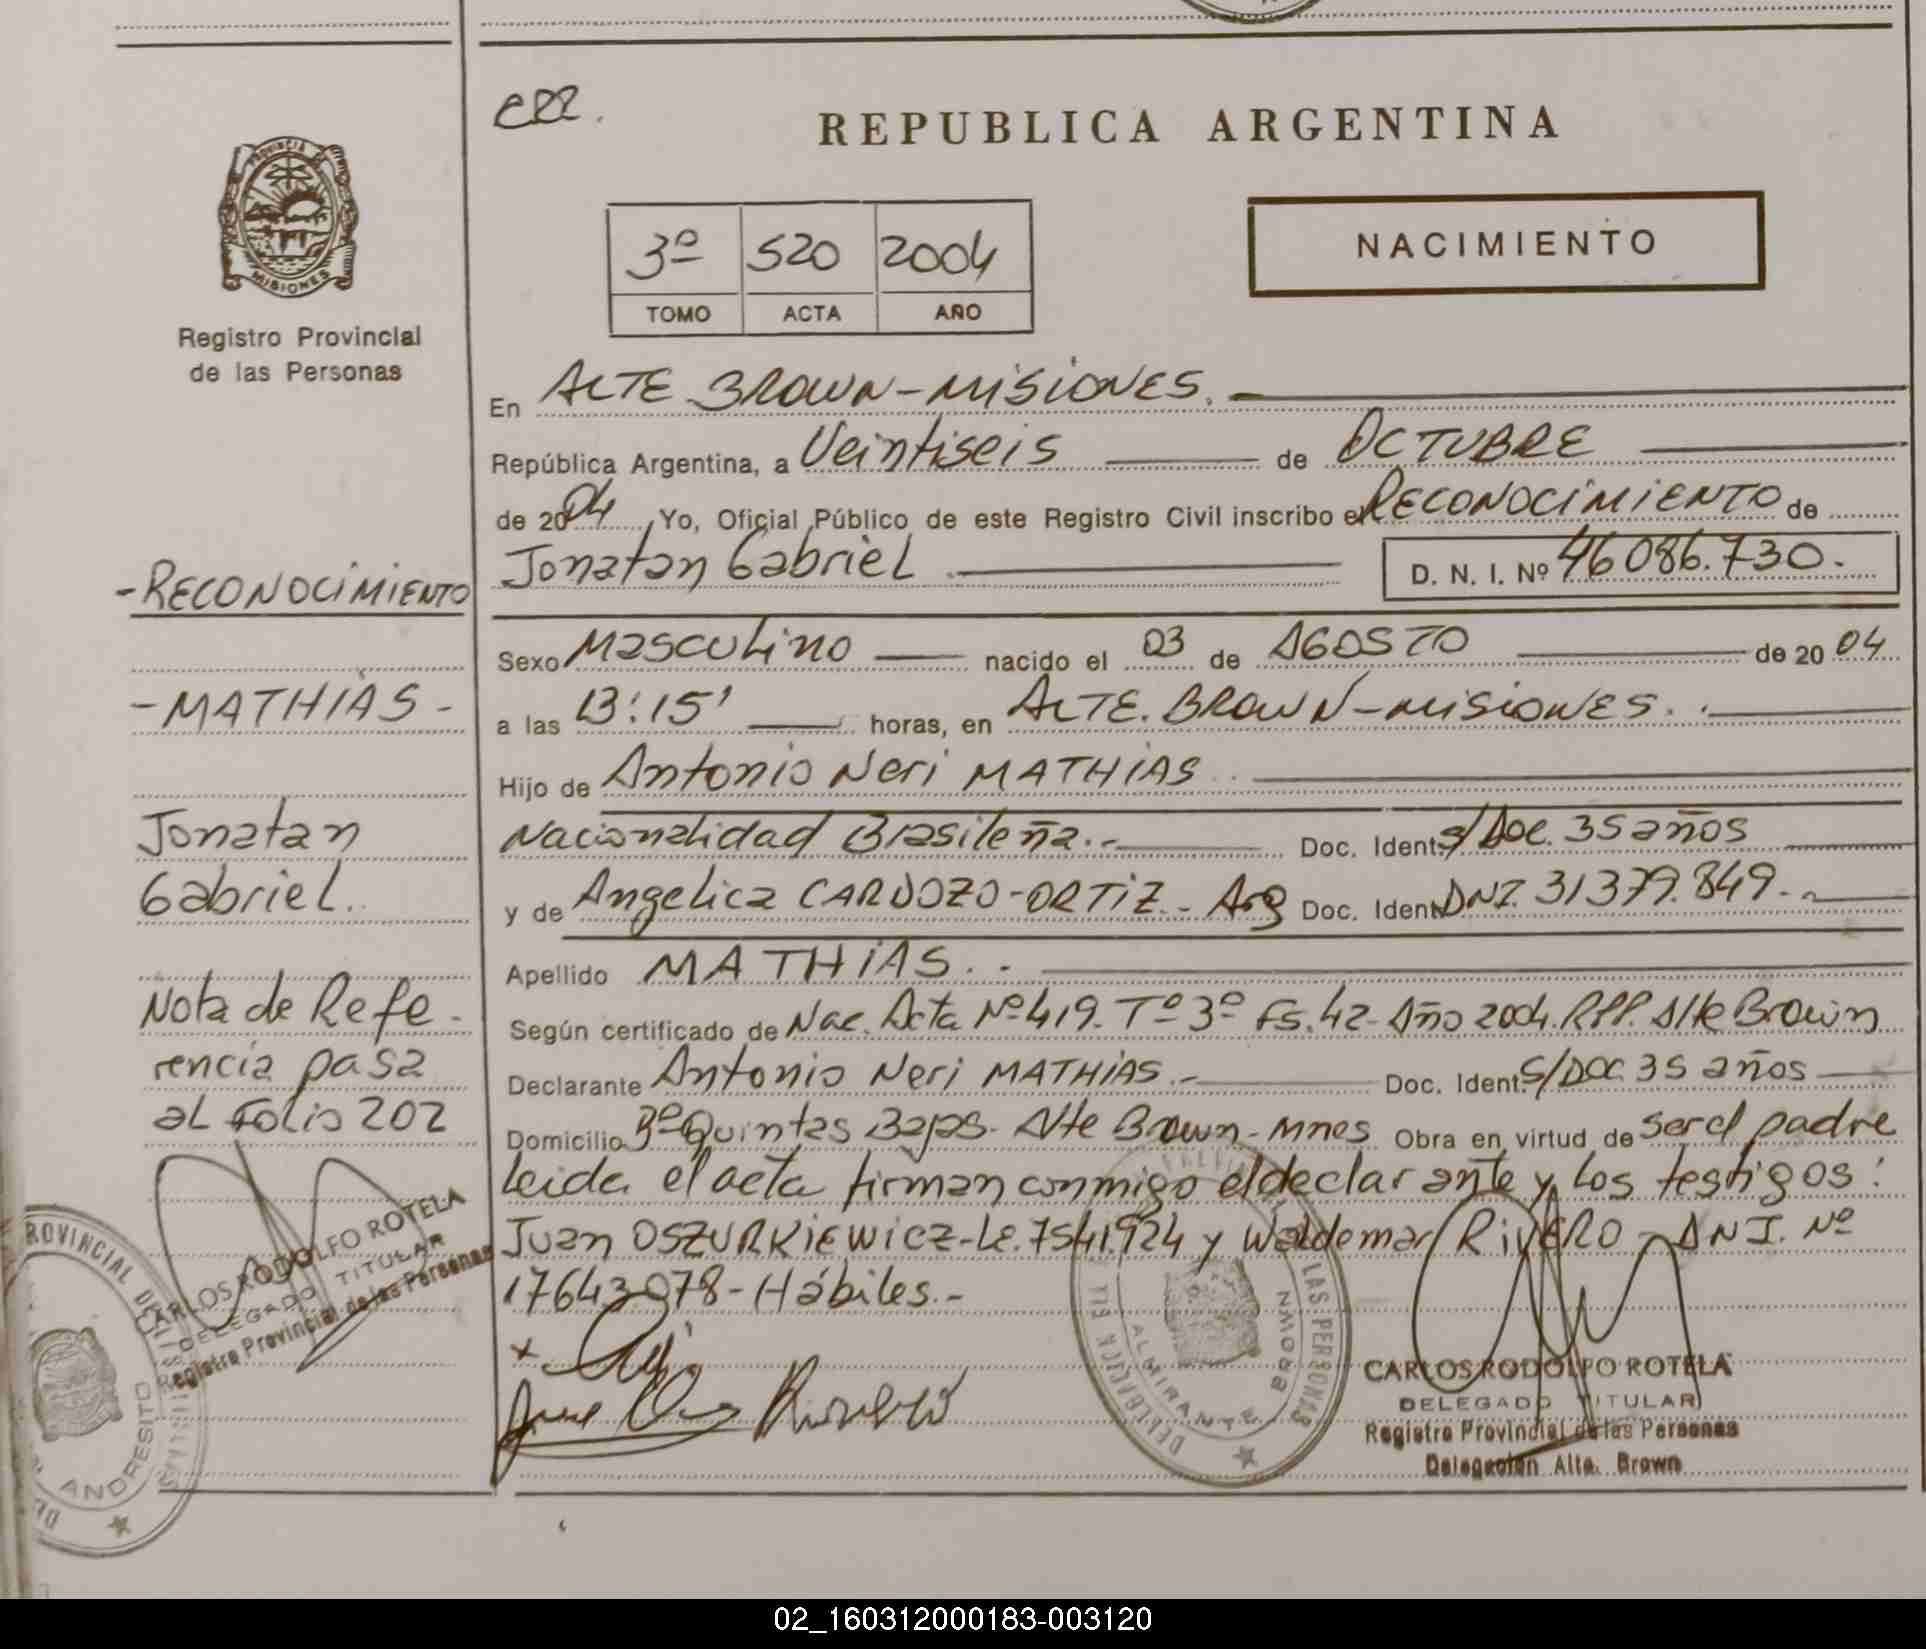 REPUBLICA ARGENTINA
NACIMIENTO
3º 520 2004
TOMO ACTA AÑO
PROVINCIA DE
MISIONES
Registro Provincial
de las Personas
En ALTE BROWN-MISIONES.
República Argentina, a Veintiseis de OCTUBRE
de 2004 Yo, Oficial Público de este Registro Civil inscribo el RECONOCIMIENTO de
Jonatan Gabriel D. N. I. Nº 46086.730.
Sexo Masculino nacido el 03 de AGOSTO de 20 04
a las 13:15' horas, en ALTE. BROWN-MISIONES.
Hijo de Antonio Neri MATHIAS
Nacionalidad Brasileña.- Doc. Ident. S/Doc. 35 años
y de Angelica CARDOZO-ORTIZ - Arg Doc. Ident. DNI. 31379.849.-
Apellido MATHIAS.-
Según certificado de Nac. Acta Nº 419. Tº 3º Fs. 42- Año 2004. RPP. Alte Brown
Declarante Antonio Neri MATHIAS.- Doc. Ident. S/DOC 35 años
Domicilio Bº Quintas Bajas- Alte Brown- Mnes Obra en virtud de ser el padre
Leida el acta firman conmigo el declarante y los testigos:
Juan OSZURKIEWICZ-LE. 7541.924 y Waldemar RIVERO - DNI. Nº
17643.078- Hábiles.-
-RECONOCIMIENTO
-MATHIAS-
Jonatan
Gabriel.
Nota de Refe-
rencia pasa
al Folio 202
CARLOS RODOLFO ROTELA
DELEGADO TITULAR
Registro Provincial de las Personas
PROVINCIAL DE
ANDRESITO
LAS PERSONAS
ALMIRANTE BROWN
CARLOS RODOLFO ROTELA
DELEGADO TITULAR
Registro Provincial de las Personas
Delegación Alte. Brown
02_160312000183-003120